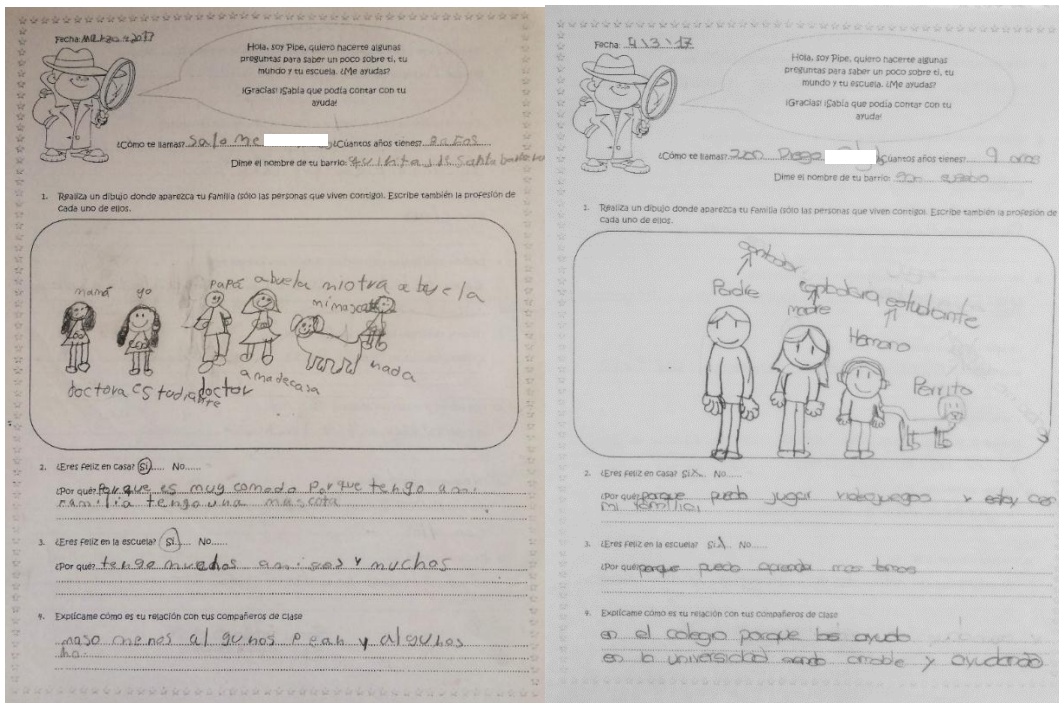 Fecha: Marzo 2017
Hola, soy Pipe, quiero hacerte algunas
preguntas para saber un poco sobre ti, tu
mundo y tu escuela. ¿Me ayudas?
¡Gracias! ¡Sabía que podía contar con tu
ayuda!
¿Cómo te llamas? Salome ¿Cúantos años tienes? 8 años
Dime el nombre de tu barrio:
1. Realiza un dibujo donde aparezca tu familia (sólo las personas que viven contigo). Escribe también la profesión de
cada uno de ellos.
mamá yo papá abuela mi otra abuela
mi mascota
doctora estudiante doctor ama de casa nada
2. ¿Eres feliz en casa? Si..... No......
¿Por qué? Porque es muy comodo Porque tengo a mi
familia tengo una mascota
3. ¿Eres feliz en la escuela? Si..... No......
¿Por qué? tengo muchos amigos y muchos
4. Explícame cómo es tu relación con tus compañeros de clase
maso menos algunos pean y algunos
no.
Fecha: 9\3\17
Hola, soy Pipe, quiero hacerte algunas
preguntas para saber un poco sobre ti, tu
mundo y tu escuela. ¿Me ayudas?
¡Gracias! ¡Sabía que podía contar con tu
ayuda!
¿Cómo te llamas? Diego ¿Cúantos años tienes? 9 años
Dime el nombre de tu barrio:
1. Realiza un dibujo donde aparezca tu familia (sólo las personas que viven contigo). Escribe también la profesión de
cada uno de ellos.
contador
Padre contadora estudiante
madre
Hermano
Perrito
2. ¿Eres feliz en casa? Si.X.. No......
¿Por qué? porque puedo jugar videojuegos y estoy con
mi familia
3. ¿Eres feliz en la escuela? Si.X.. No......
¿Por qué? porque puedo aprender mas temas
4. Explícame cómo es tu relación con tus compañeros de clase
en el colegio porque los ayudo
en la universidad siendo amable y ayudando